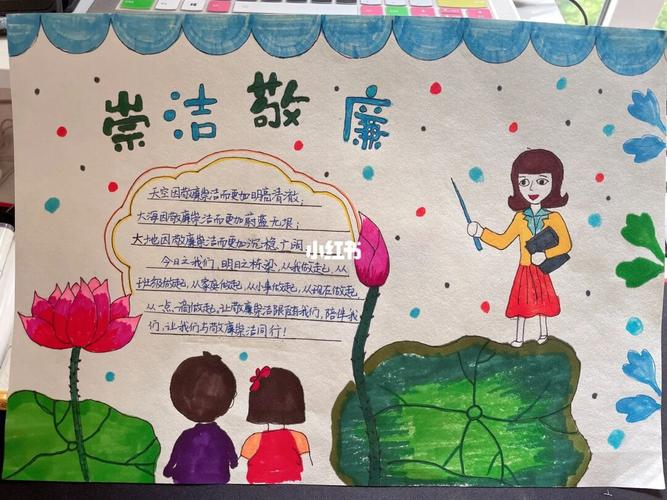 崇洁敬廉
天空因敬廉崇洁而更加明亮清澈；
大海因敬廉崇洁而更加蔚蓝无垠；
大地因敬廉崇洁而更加沉稳广阔。
今日之我们，明日之栋梁，从我做起，从
班级做起，从家庭做起，从小事做起，从现在做起，
从一点一滴做起，让敬廉崇洁跟随我们，陪伴我
们，让我们与敬廉崇洁同行！
小红书